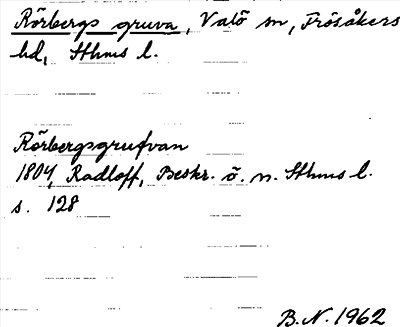 Rörbergs gruva, Valö sn, Frösåkers
hd, Sthms l.
Rörbergsgrufvan
1804, Radloff, Beskr. ö. n. Sthms l.
s. 128
B.N. 1962